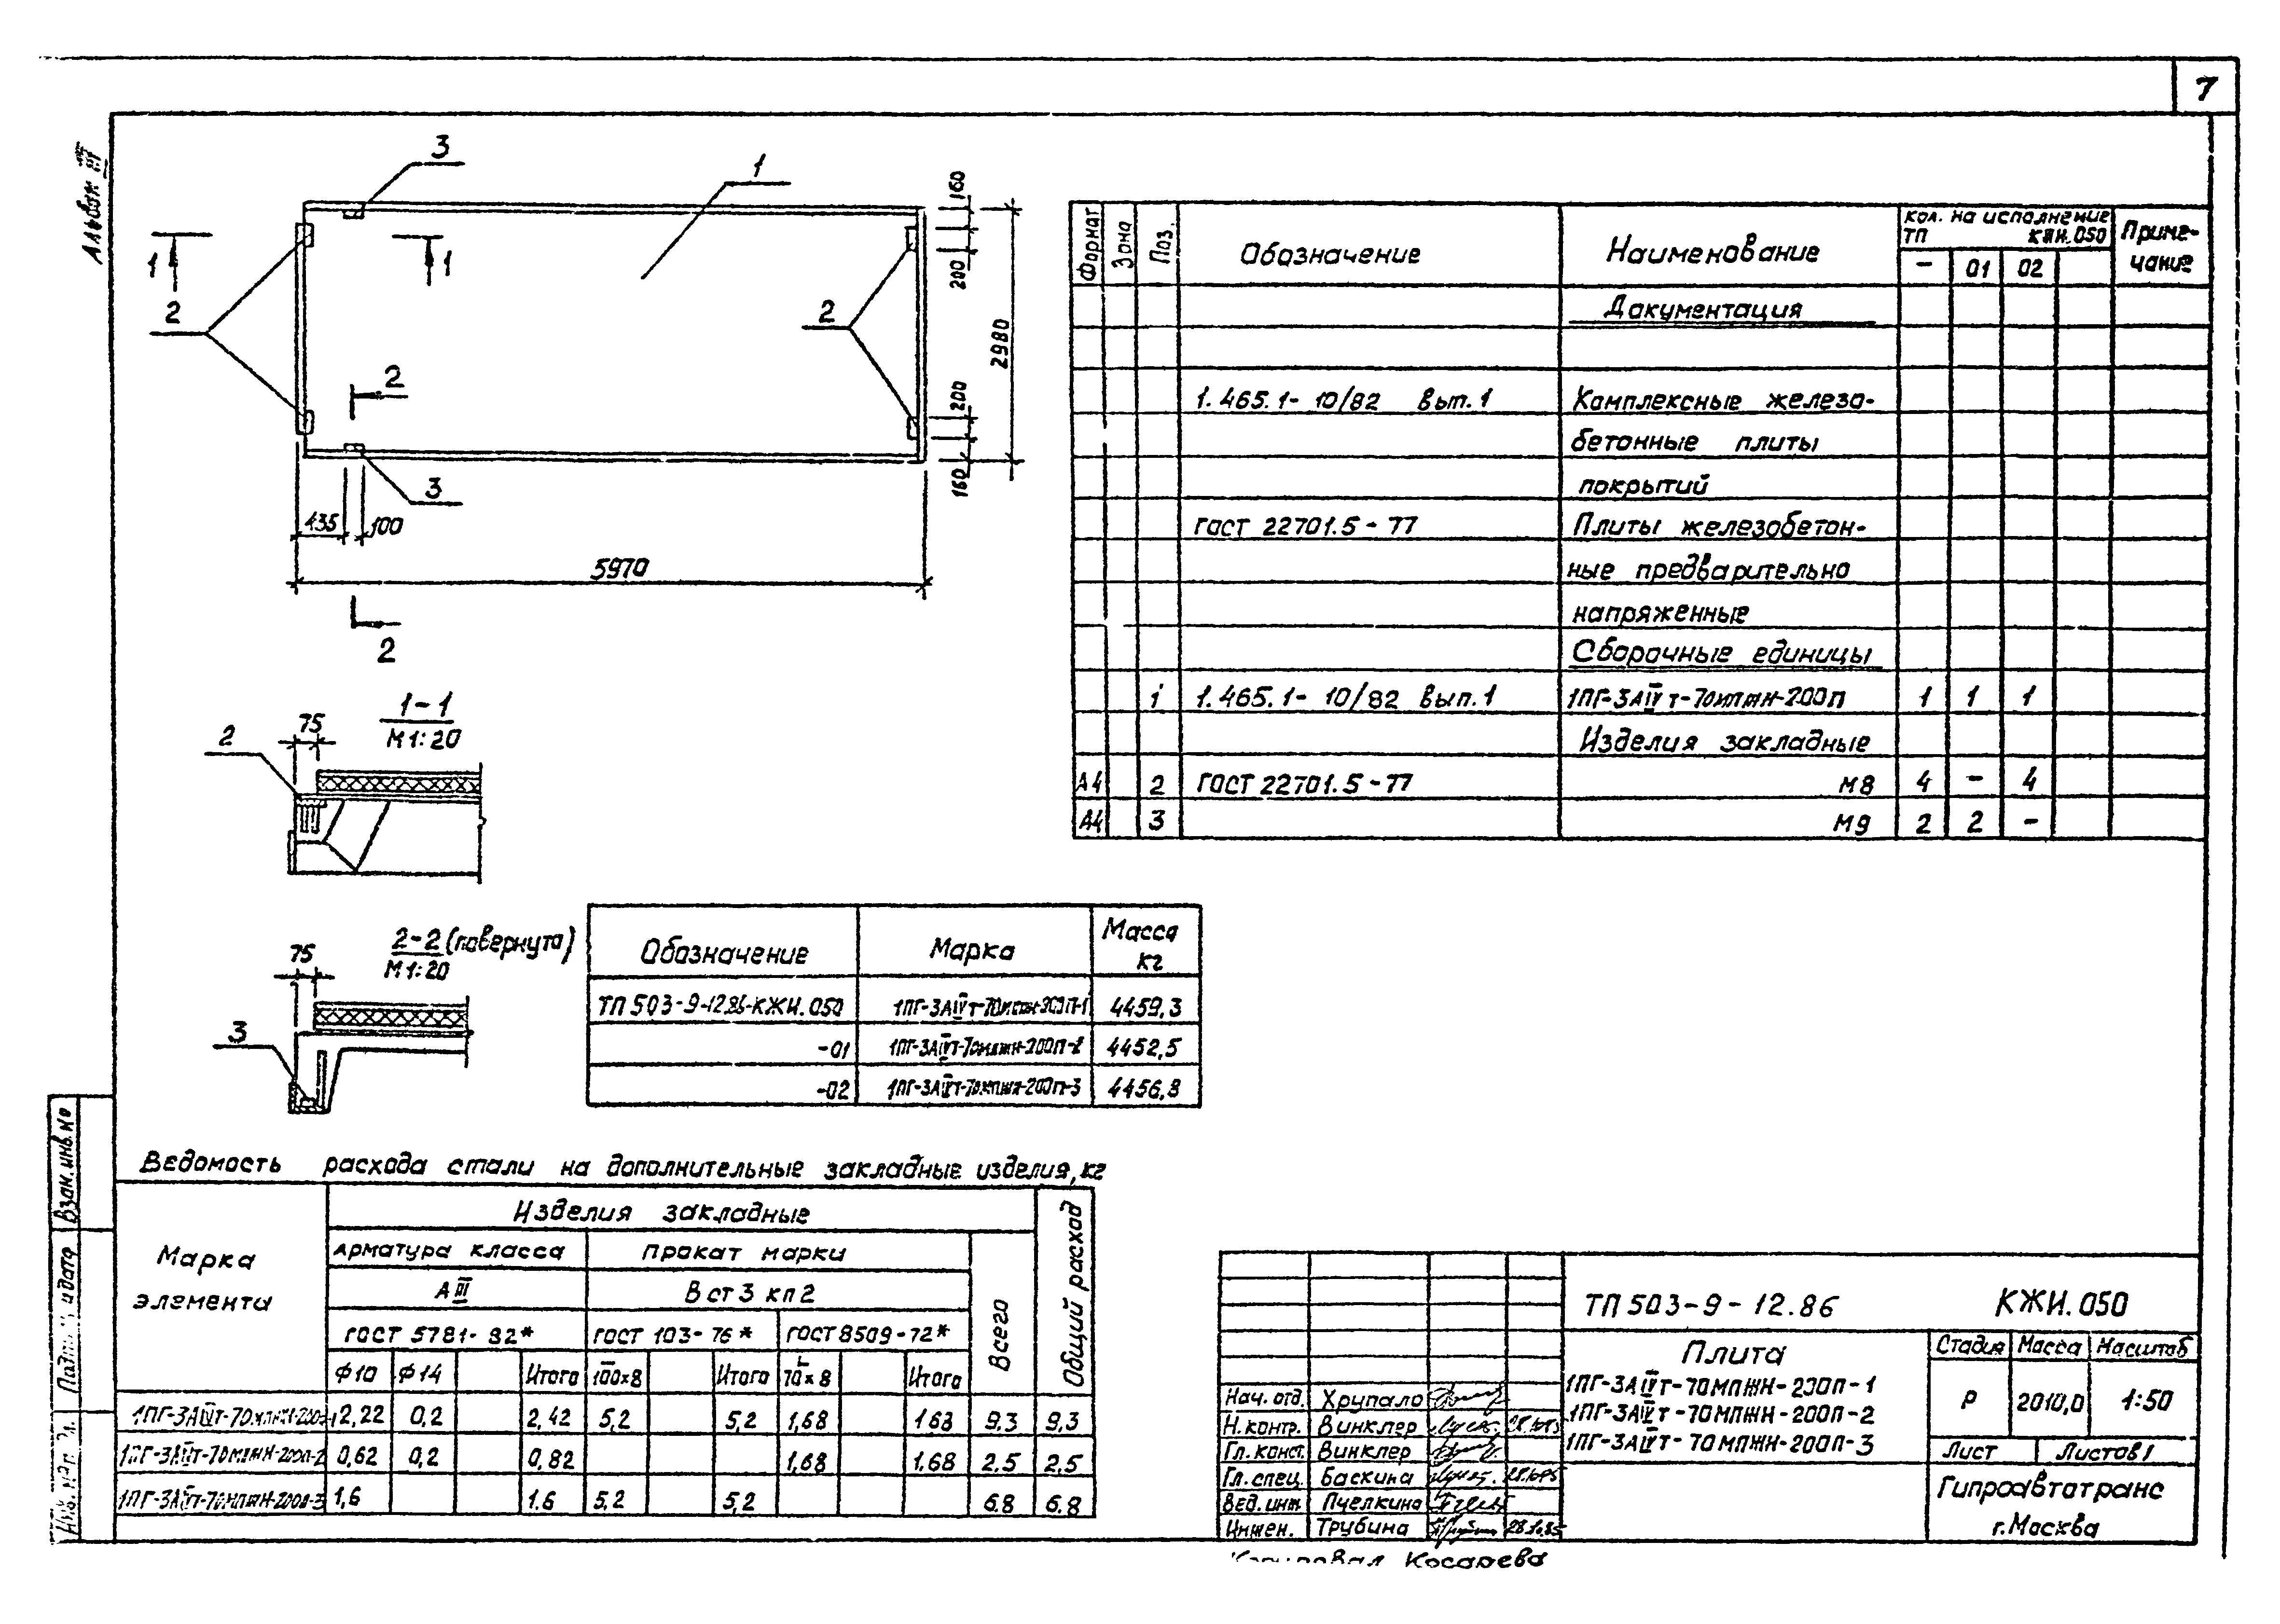 7
Альбом III
3
1
160
200
2980
200
160
1 1
2
2
2
3
435 100
5970
2
1-1
М 1:20
75
2
2-2 (повернута)
М 1:20
75
3
Формат Зона Поз. Обозначение Наименование Кол. на исполнение ТП КЖИ.050 Приме-
чание
- 01 02
Документация
1.465.1- 10/82 Вып.1 Комплексные железо-
бетонные плиты
покрытий
ГОСТ 22701.5-77 Плиты железобетон-
ные предварительно
напряженные
Сборочные единицы
1 1.465.1- 10/82 Вып.1 1ПГ-3АIVт-70мпжн-200п 1 1 1
Изделия закладные
А4 2 ГОСТ 22701.5-77 М8 4 - 4
А4 3 М9 2 2 -
Обозначение Марка Масса
кг
ТП 503-9-12.86-КЖИ.050 1ПГ-3АIVт-70мпжн-200П-1 4459,3
-01 1ПГ-3АIVт-70мпжн-200П-2 4452,5
-02 1ПГ-3АIVт-70мпжн-200П-3 4456,8
Ведомость расхода стали на дополнительные закладные изделия, кг
Марка
элемента
Изделия закладные
Арматура класса Прокат марки
А III В ст 3 кп 2
ГОСТ 5781-82* ГОСТ 103-76* ГОСТ 8509-72*
Всего
Общий расход
Ф10 Ф14 Итого 100×8 Итого 70×8 Итого
1ПГ-3АIVт-70мпжн-200П-1 2,22 0,2 2,42 5,2 5,2 1,68 1,68 9,3 9,3
1ПГ-3АIVт-70мпжн-200П-2 0,62 0,2 0,82 1,68 1,68 2,5 2,5
1ПГ-3АIVт-70мпжн-200П-3 1,6 1,6 5,2 5,2 6,8 6,8
Взам. инв. №
Подп. и дата
Инв. № п.
ТП 503-9-12.86 КЖИ.050
Плита
1ПГ-3АIVт-70МПЖН-200П-1
1ПГ-3АIVт-70МПЖН-200П-2
1ПГ-3АIVт-70МПЖН-200П-3
Стадия Масса Масштаб
Р 2010,0 1:50
Лист Листов 1
Гипроавтотранс
г. Москва
Нач. отд. Хрупало
Н. контр. Винклер
Гл. конст. Винклер
Гл. спец. Баскина
Вед. инж. Пчелкина
Инжен. Трубина 28.10.85
Копировал Косарева